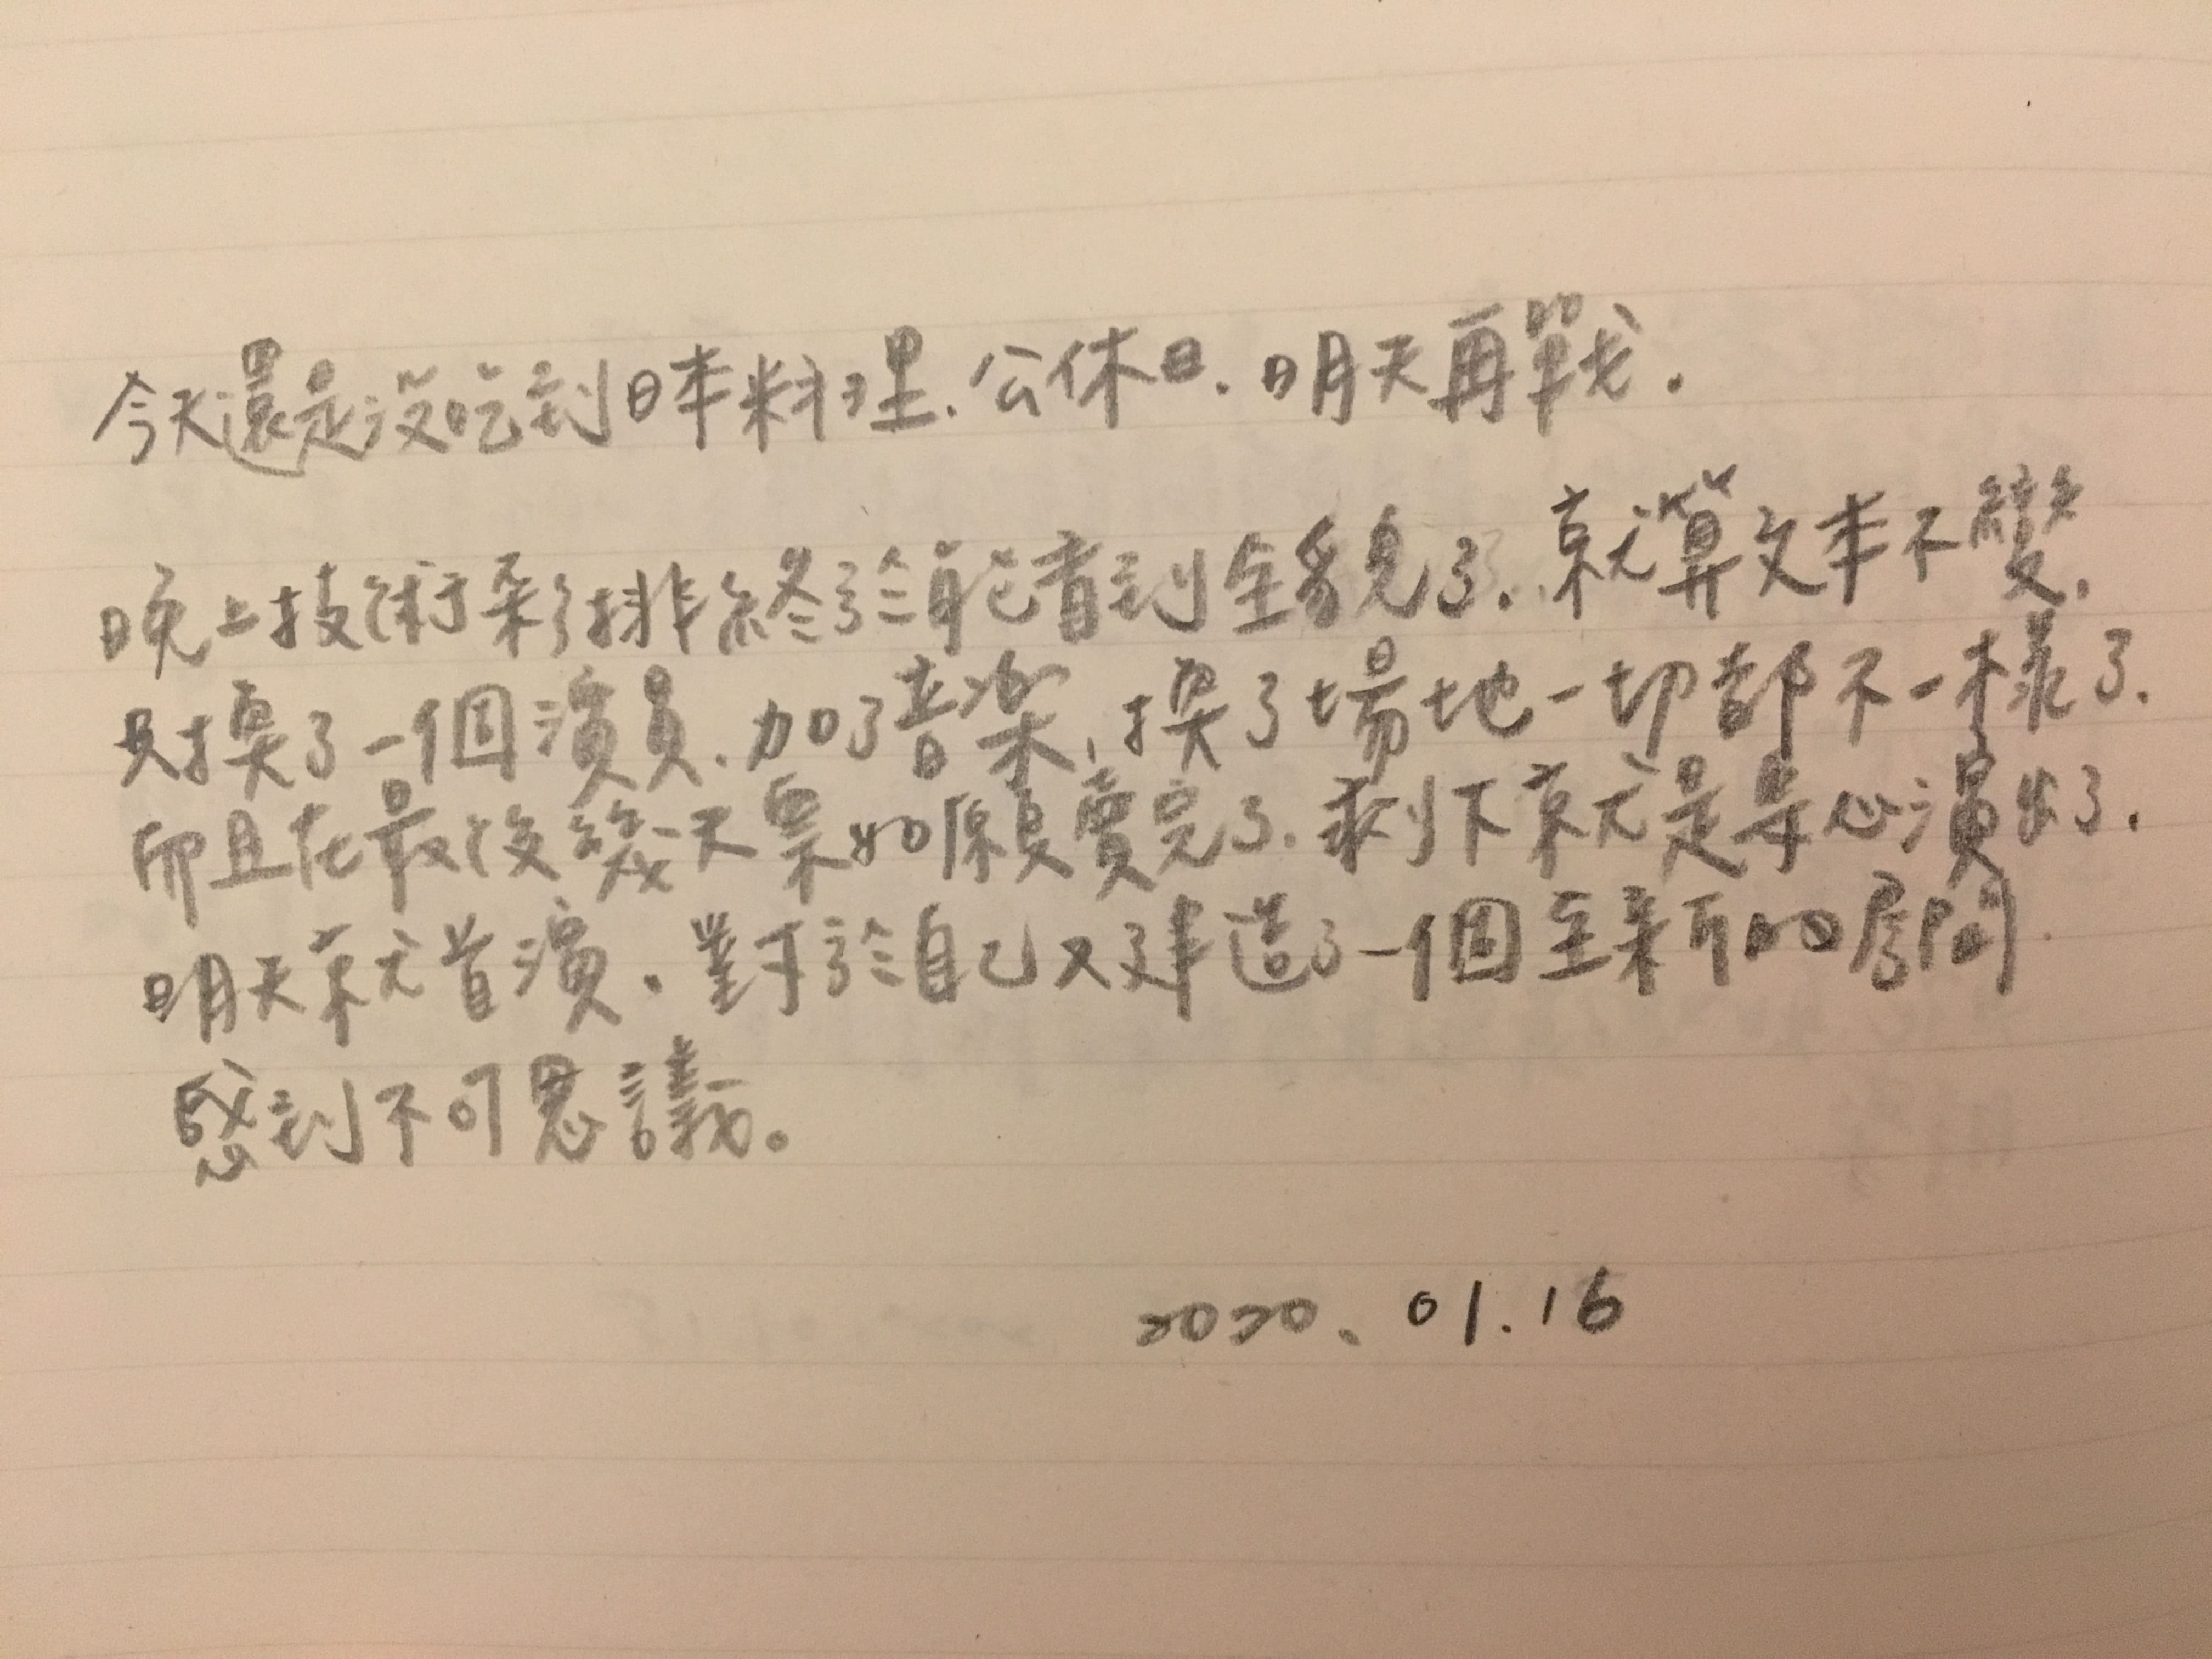 今天還是沒吃到日本料理.公休日.明天再戰.
晚上技術彩排終於能看到全貌了.就算文本不變.
只換了一個演員.加了音樂,換了場地一切都不一樣了.
而且在最後幾天票如願賣完了.剩下就是專心演出了.
明天就首演.對於自己又建造了一個全新的房間
感到不可思議。
2020.01.16